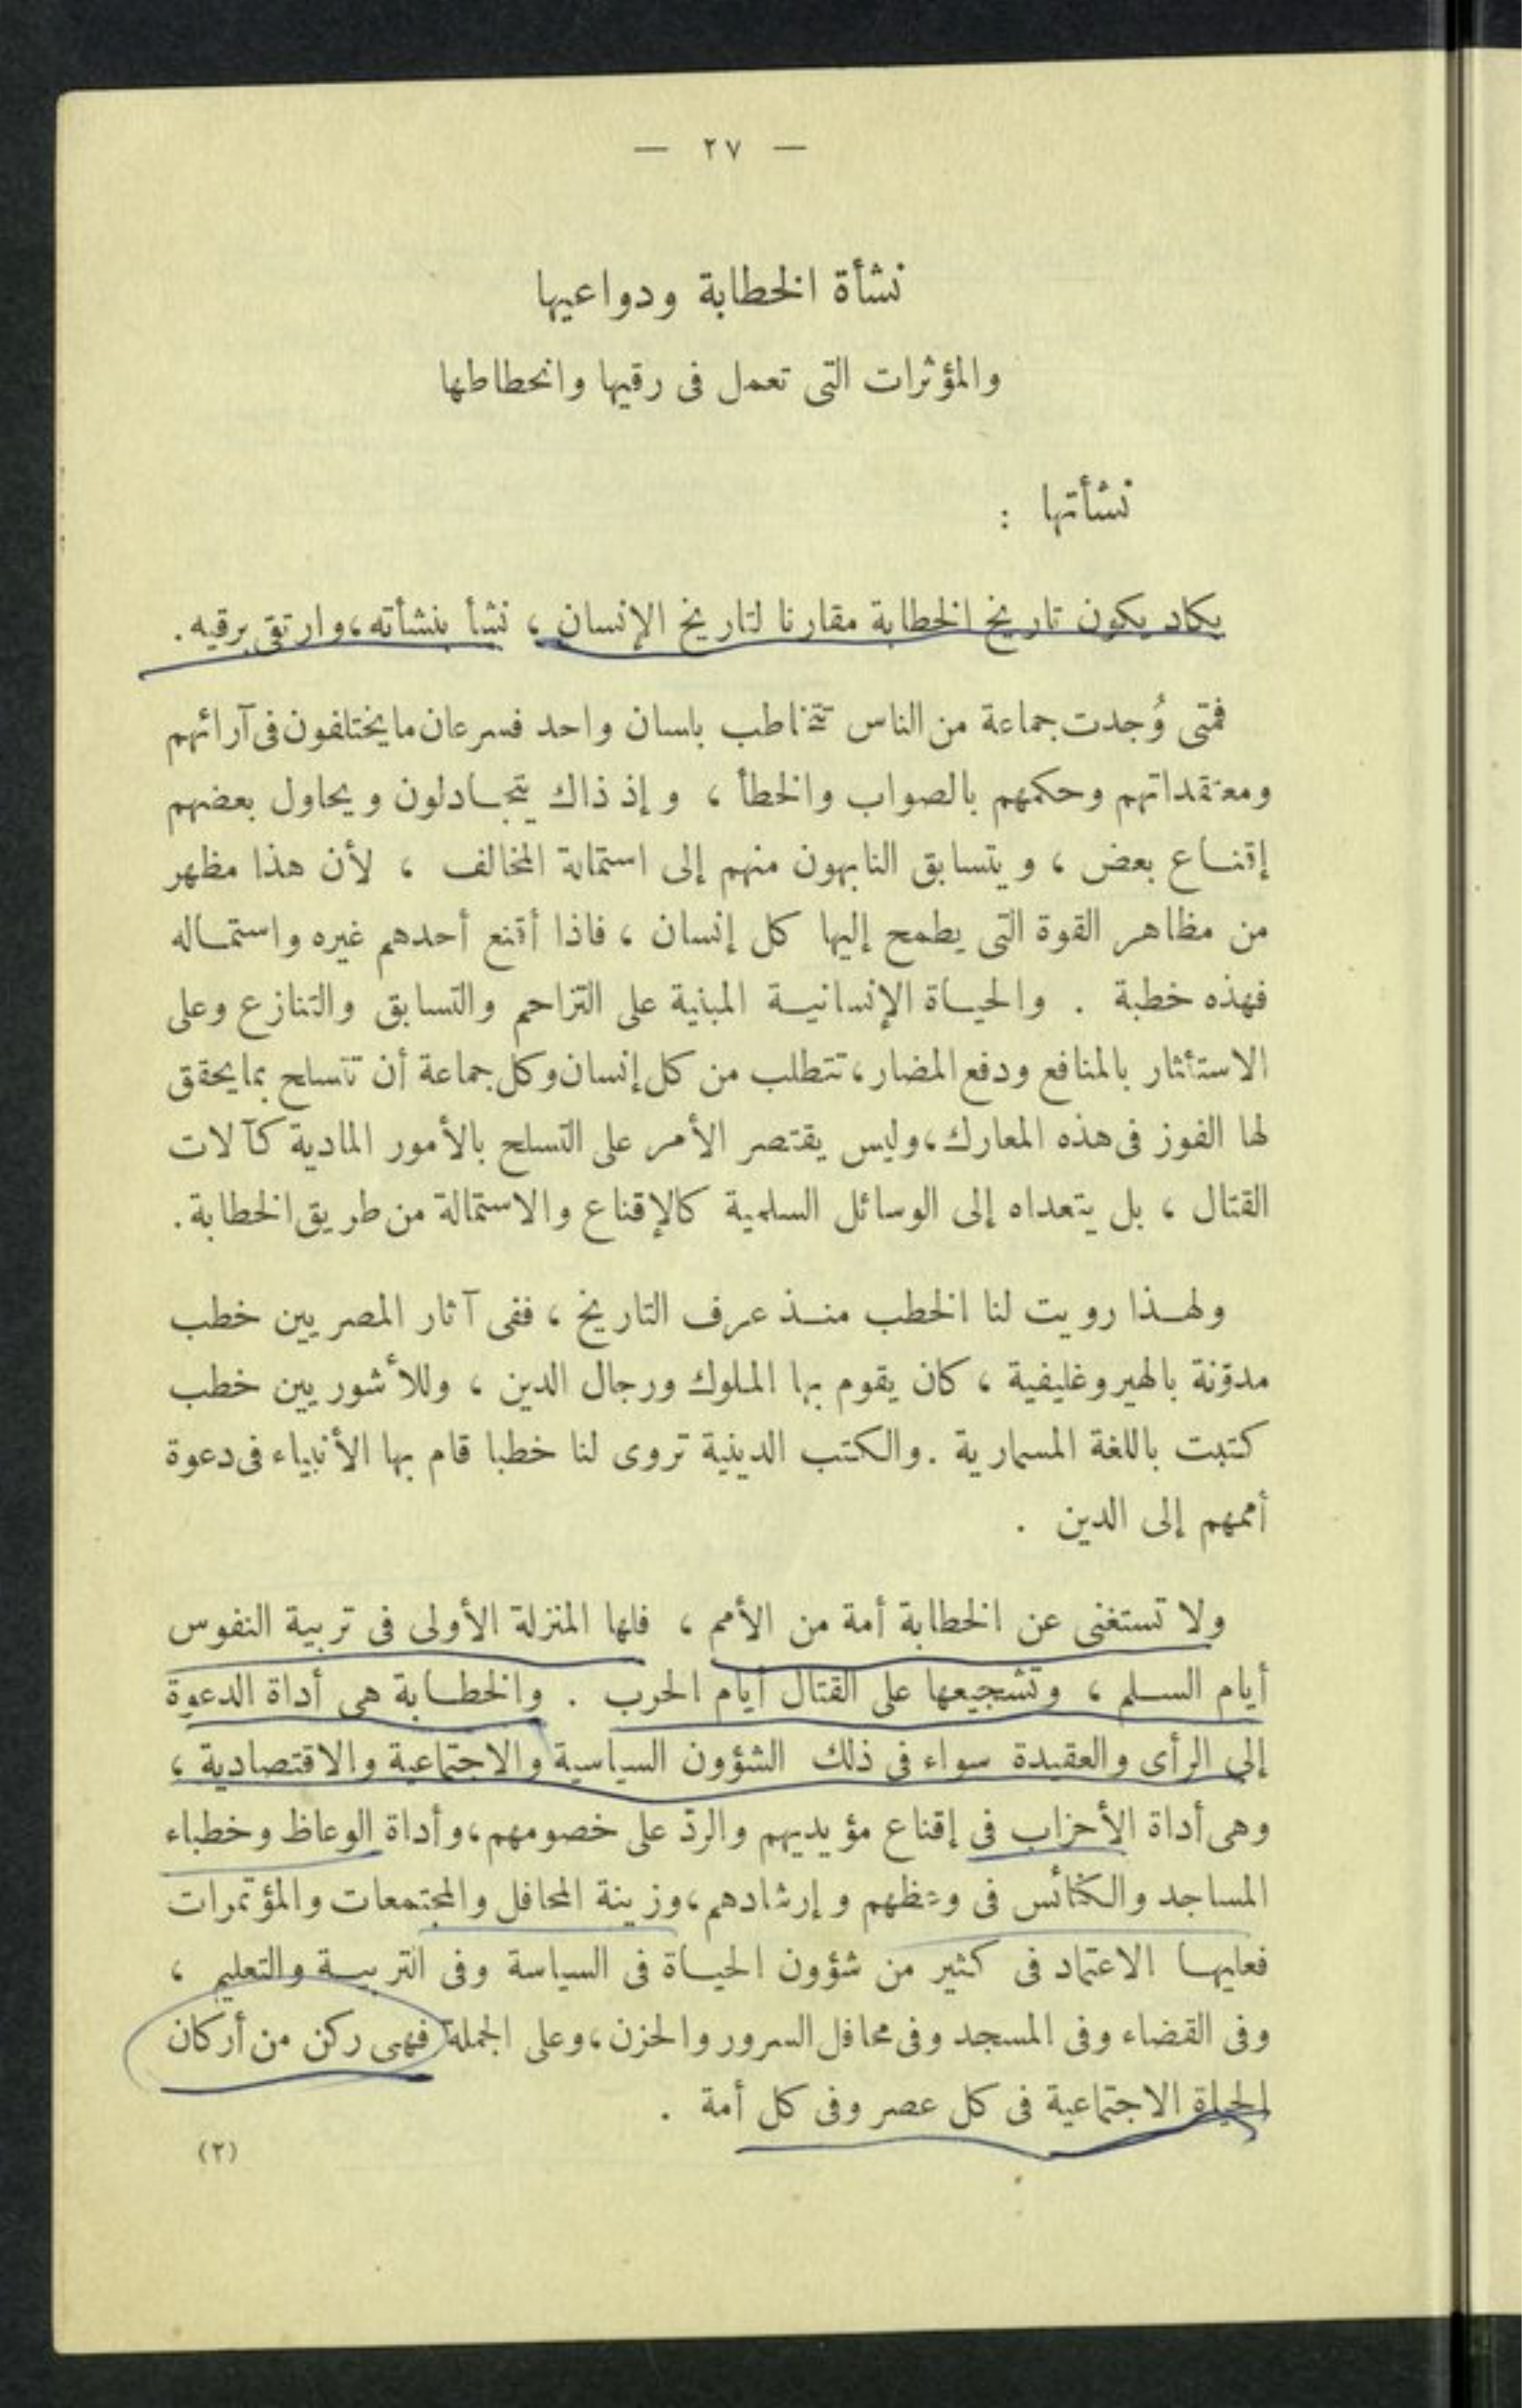 — ٢٧ —
نشأة الخطابة ودواعيها
والمؤثرات التى تعمل فى رقيها وانحطاطها
نشأتها :
يكاد يكون تاريخ الخطابة مقارنا لتاريخ الإنسان ، نشأ بنشأته ، وارتقى برقيه .
فمتى وُجدت جماعة من الناس تتخاطب بلسان واحد فسرعان ما يختلفون فى آرائهم
ومعتقداتهم وحكمهم بالصواب والخطأ ، وإذ ذاك يتجادلون ويحاول بعضهم
إقناع بعض ، ويتسابق النابهون منهم إلى استمالة المخالف ، لأن هذا مظهر
من مظاهر القوة التى يطمح إليها كل إنسان ، فاذا أقنع أحدهم غيره واستماله
فهذه خطبة . والحياة الإنسانية المبنية على التزاحم والتسابق والتنازع وعلى
الاستئثار بالمنافع ودفع المضار ، تتطلب من كل إنسان وكل جماعة أن تتسلح بما يحقق
لها الفوز فى هذه المعارك ، وليس يقتصر الأمر على التسلح بالأمور المادية كآلات
القتال ، بل يتعداه إلى الوسائل السلمية كالإقناع والاستمالة من طريق الخطابة .
ولهذا رويت لنا الخطب منذ عرف التاريخ ، ففى آثار المصريين خطب
مدوّنة بالهيروغليفية ، كان يقوم بها الملوك ورجال الدين ، وللأشوريين خطب
كتبت باللغة المسمارية . والكتب الدينية تروى لنا خطبا قام بها الأنبياء فى دعوة
أممهم إلى الدين .
ولا تستغنى عن الخطابة أمة من الأمم ، فلها المنزلة الأولى فى تربية النفوس
أيام السلم ، وتشجيعها على القتال أيام الحرب . والخطابة هى أداة الدعوة
إلى الرأى والعقيدة سواء فى ذلك الشؤون السياسية والاجتماعية والاقتصادية ،
وهى أداة الأحزاب فى إقناع مؤيديهم والردّ على خصومهم ، وأداة الوعاظ وخطباء
المساجد والكنائس فى وعظهم وإرشادهم ، وزينة المحافل والمجتمعات والمؤتمرات
فعليها الاعتماد فى كثير من شؤون الحياة فى السياسة وفى التربية والتعليم ،
وفى القضاء وفى المسجد وفى محافل السرور والحزن ، وعلى الجملة فهى ركن من أركان
الحياة الاجتماعية فى كل عصر وفى كل أمة .
(٢)